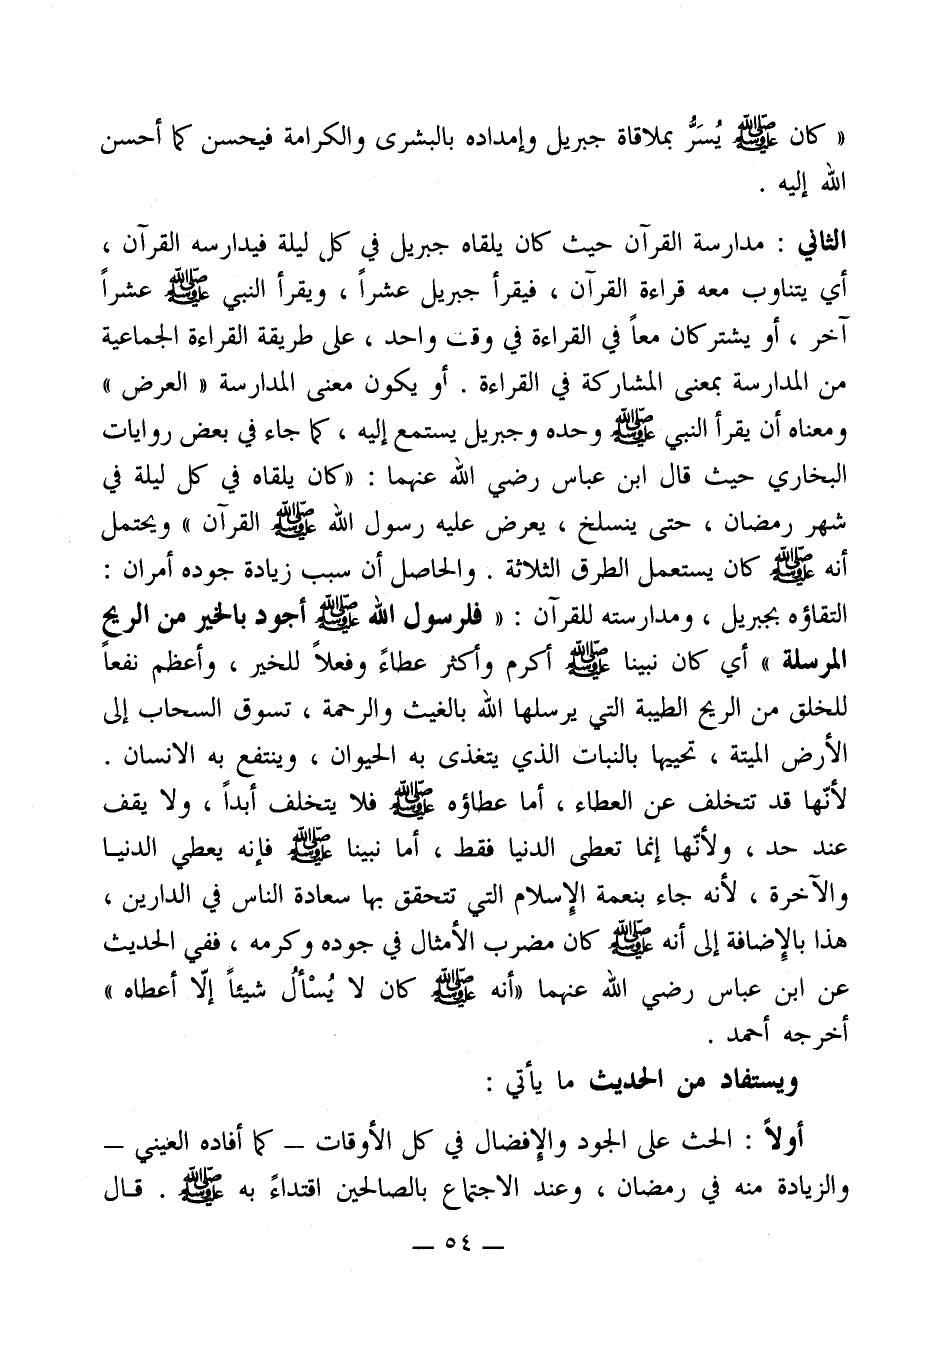 « كان ﷺ يُسَرُّ بملاقاة جبريل وإمداده بالبشرى والكرامة فيحسن كما أحسن
الله إليه .
الثاني : مدارسة القرآن حيث كان يلقاه جبريل في كل ليلة فيدارسه القرآن ،
أي يتناوب معه قراءة القرآن ، فيقرأ جبريل عشراً ، ويقرأ النبي ﷺ عشراً
آخر ، أو يشتركان معاً في القراءة في وقت واحد ، على طريقة القراءة الجماعية
من المدارسة بمعنى المشاركة في القراءة . أو يكون معنى المدارسة « العرض »
ومعناه أن يقرأ النبي ﷺ وحده وجبريل يستمع إليه ، كما جاء في بعض روايات
البخاري حيث قال ابن عباس رضي الله عنهما : «كان يلقاه في كل ليلة في
شهر رمضان ، حتى ينسلخ ، يعرض عليه رسول الله ﷺ القرآن » ويحتمل
أنه ﷺ كان يستعمل الطرق الثلاثة . والحاصل أن سبب زيادة جوده أمران :
التقاؤه بجبريل ، ومدارسته للقرآن : « فلرسول الله ﷺ أجود بالخير من الريح
المرسلة » أي كان نبينا ﷺ أكرم وأكثر عطاءً وفعلاً للخير ، وأعظم نفعاً
للخلق من الريح الطيبة التي يرسلها الله بالغيث والرحمة ، تسوق السحاب إلى
الأرض الميتة ، تحييها بالنبات الذي يتغذى به الحيوان ، وينتفع به الانسان .
لأنّها قد تتخلف عن العطاء ، أما عطاؤه ﷺ فلا يتخلف أبداً ، ولا يقف
عند حد ، ولأنّها إنما تعطى الدنيا فقط ، أما نبينا ﷺ فإنه يعطي الدنيا
والآخرة ، لأنه جاء بنعمة الإسلام التي تتحقق بها سعادة الناس في الدارين ،
هذا بالإضافة إلى أنه ﷺ كان مضرب الأمثال في جوده وكرمه ، ففي الحديث
عن ابن عباس رضي الله عنهما «أنه ﷺ كان لا يُسْألُ شيئاً إلّا أعطاه »
أخرجه أحمد .
ويستفاد من الحديث ما يأتي :
أولاً : الحث على الجود والإفضال في كل الأوقات — كما أفاده العيني —
والزيادة منه في رمضان ، وعند الاجتماع بالصالحين اقتداءً به ﷺ . قال
— ٥٤ —